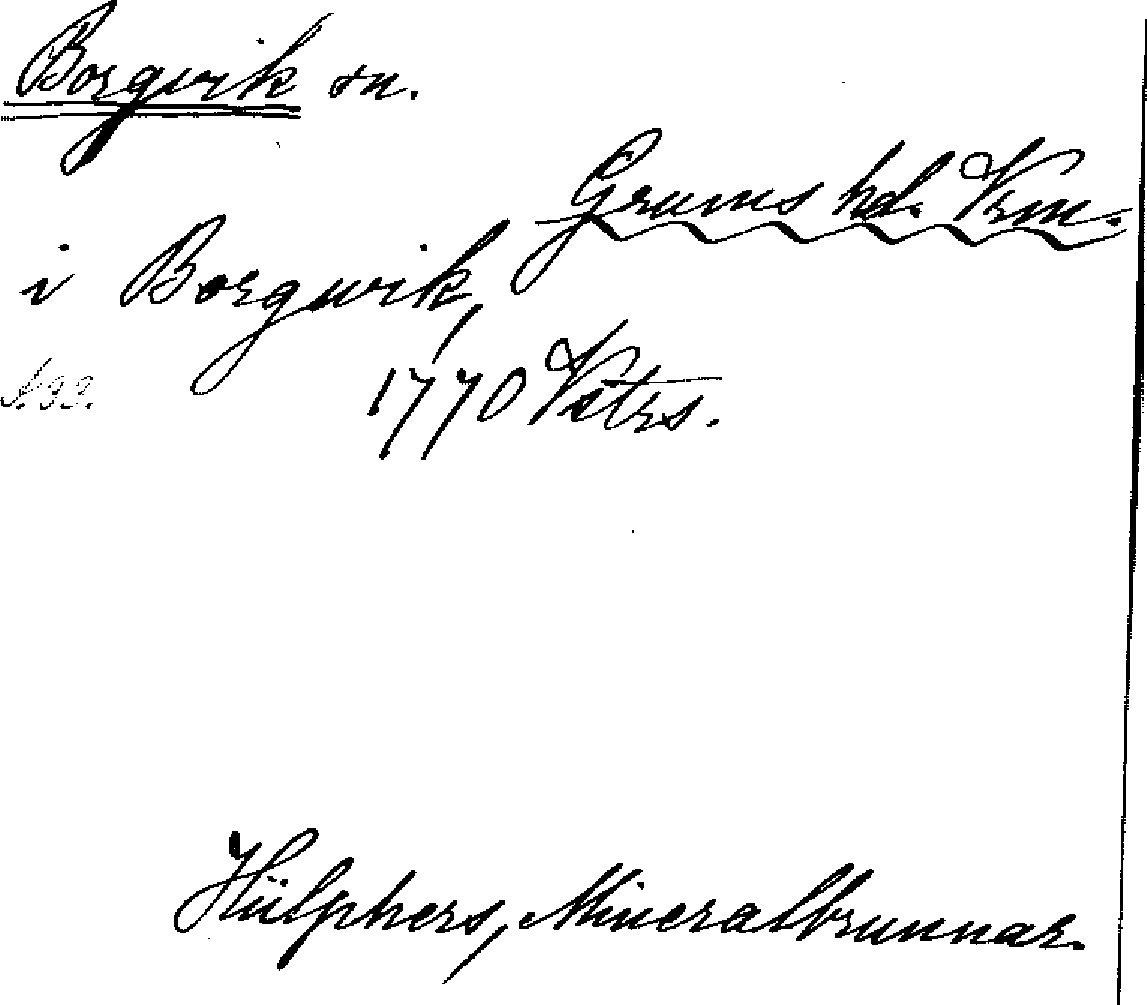 Borgvik sn.
Grums hd. Vrm.
i Borgwik,
s. 99.
1770 Vstrs.
Hülphers, Mineralbrunnar.